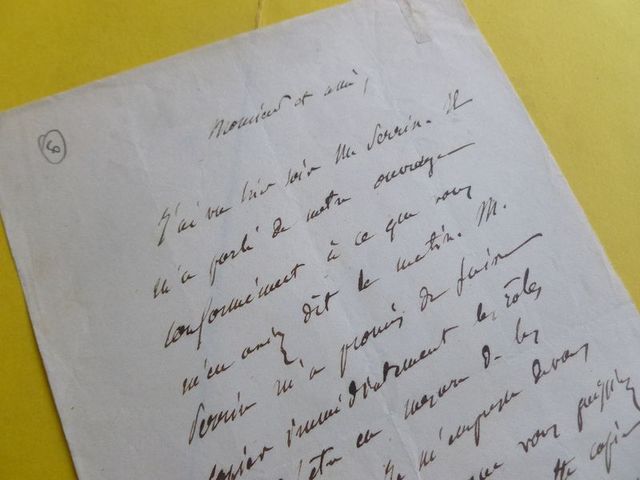 60
Monsieur et ami,
J'ai vu hier soir M. Perrin. il
m'a parlé de notre ouvrage
conformément à ce que vous
m'en aviez dit le matin. M.
Perrin m'a promis de faire
copier immédiatement les rôles
être en mesure de les
Je m'empresse
que vous puissiez
copie